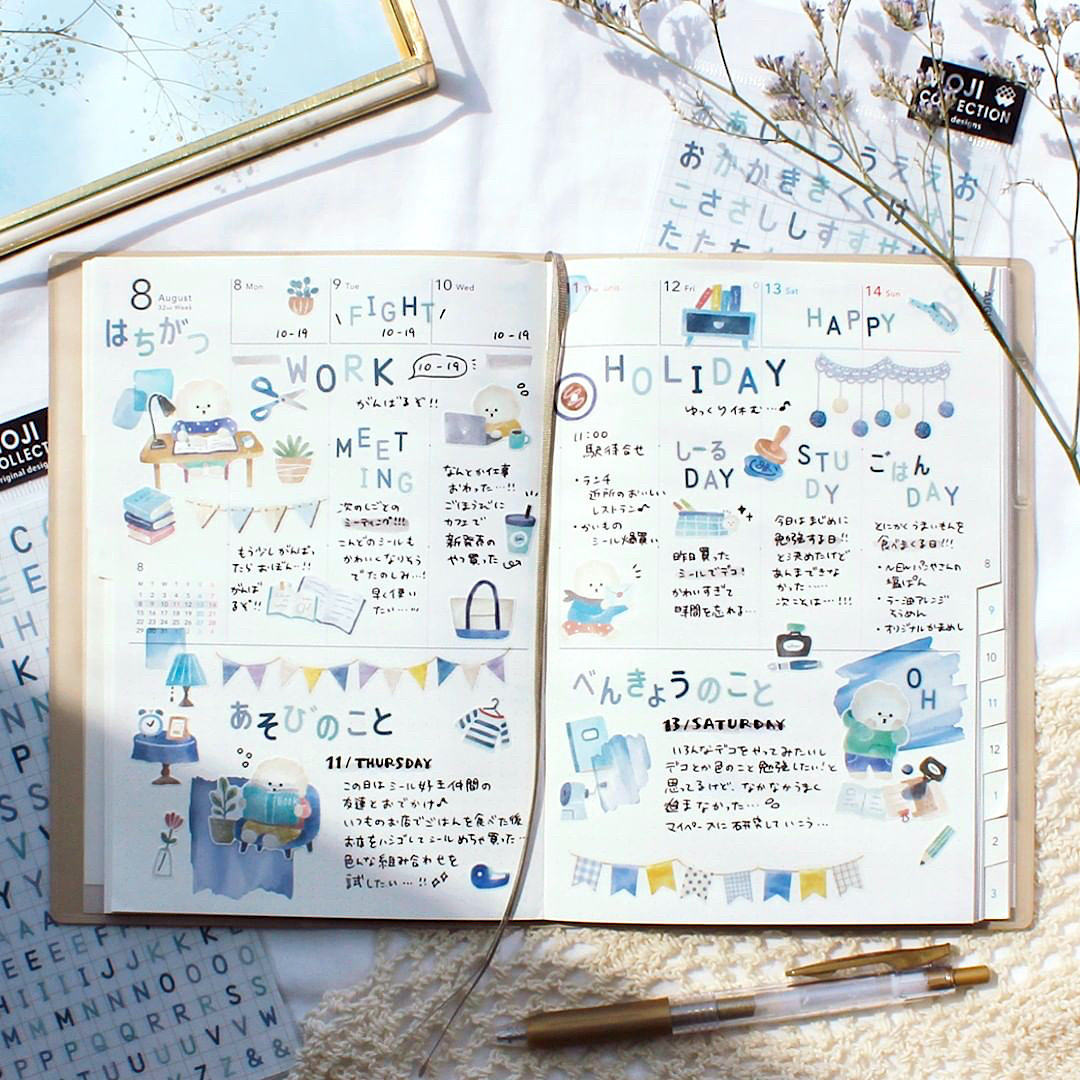 MOJI
COLLECTION
designs
あ い う え え お
お か か き き く く け
こ さ さ し し す す せ
た た ち
MOJI
COLLECT
original design
8 August
32nd Week
はちがつ
8 Mon
10-19
9 Tue
FIGHT
10-19
10 Wed
10-19
WORK
10-19
がんばるぞ!!
MEETING
次のしごとの
ミーティング!!!
こんどのシールも
かわいくなりそう
でたのしみ…!
早く使い
たい…
なんとか仕事
おわった…!!
ごほうびに
カフェで
新発売の
やつ買った
もう少しがんばっ
たらおぼん…!!
がんば
るぞ!!
8
M T W T F S S
1 2 3 4 5 6 7
8 9 10 11 12 13 14
15 16 17 18 19 20 21
22 23 24 25 26 27 28
29 30 31
あそびのこと
11/THURSDAY
この日はシール好き仲間の
友達とおでかけ♪
いつものお店でごはんを食べた後
お店をハシゴしてシールめちゃ買った…
色んな組み合わせを
試したい…!!
11 Thu
12 Fri
13 Sat
14 Sun
HAPPY
AUGUST
HOLIDAY
ゆっくり休む…♪
11:00
駅待合せ
・ランチ
近所のおいしい
レストラン♪
・かいもの
シール爆買い
しーる
DAY
昨日買った
シールでデコ!
かわいすぎて
時間を忘れる…
STUDY
今日はまじめに
勉強する日!!
と決めたけど
あんまできな
かった……
次こそは…!!!
ごはん
DAY
とにかくうまいもんを
食べまくる日!!!
・NEWパンやさんの
塩ぱん
・ラー油アレンジ
そうめん
・オリジナルかまめし
べんきょうのこと
13/SATURDAY
いろんなデコをやってみたいし
デコとか色のこと勉強したい!と
思ってるけど、なかなかうまく
進まなかった…
マイペースに研究していこう…
OH
8
9
10
11
12
1
2
3